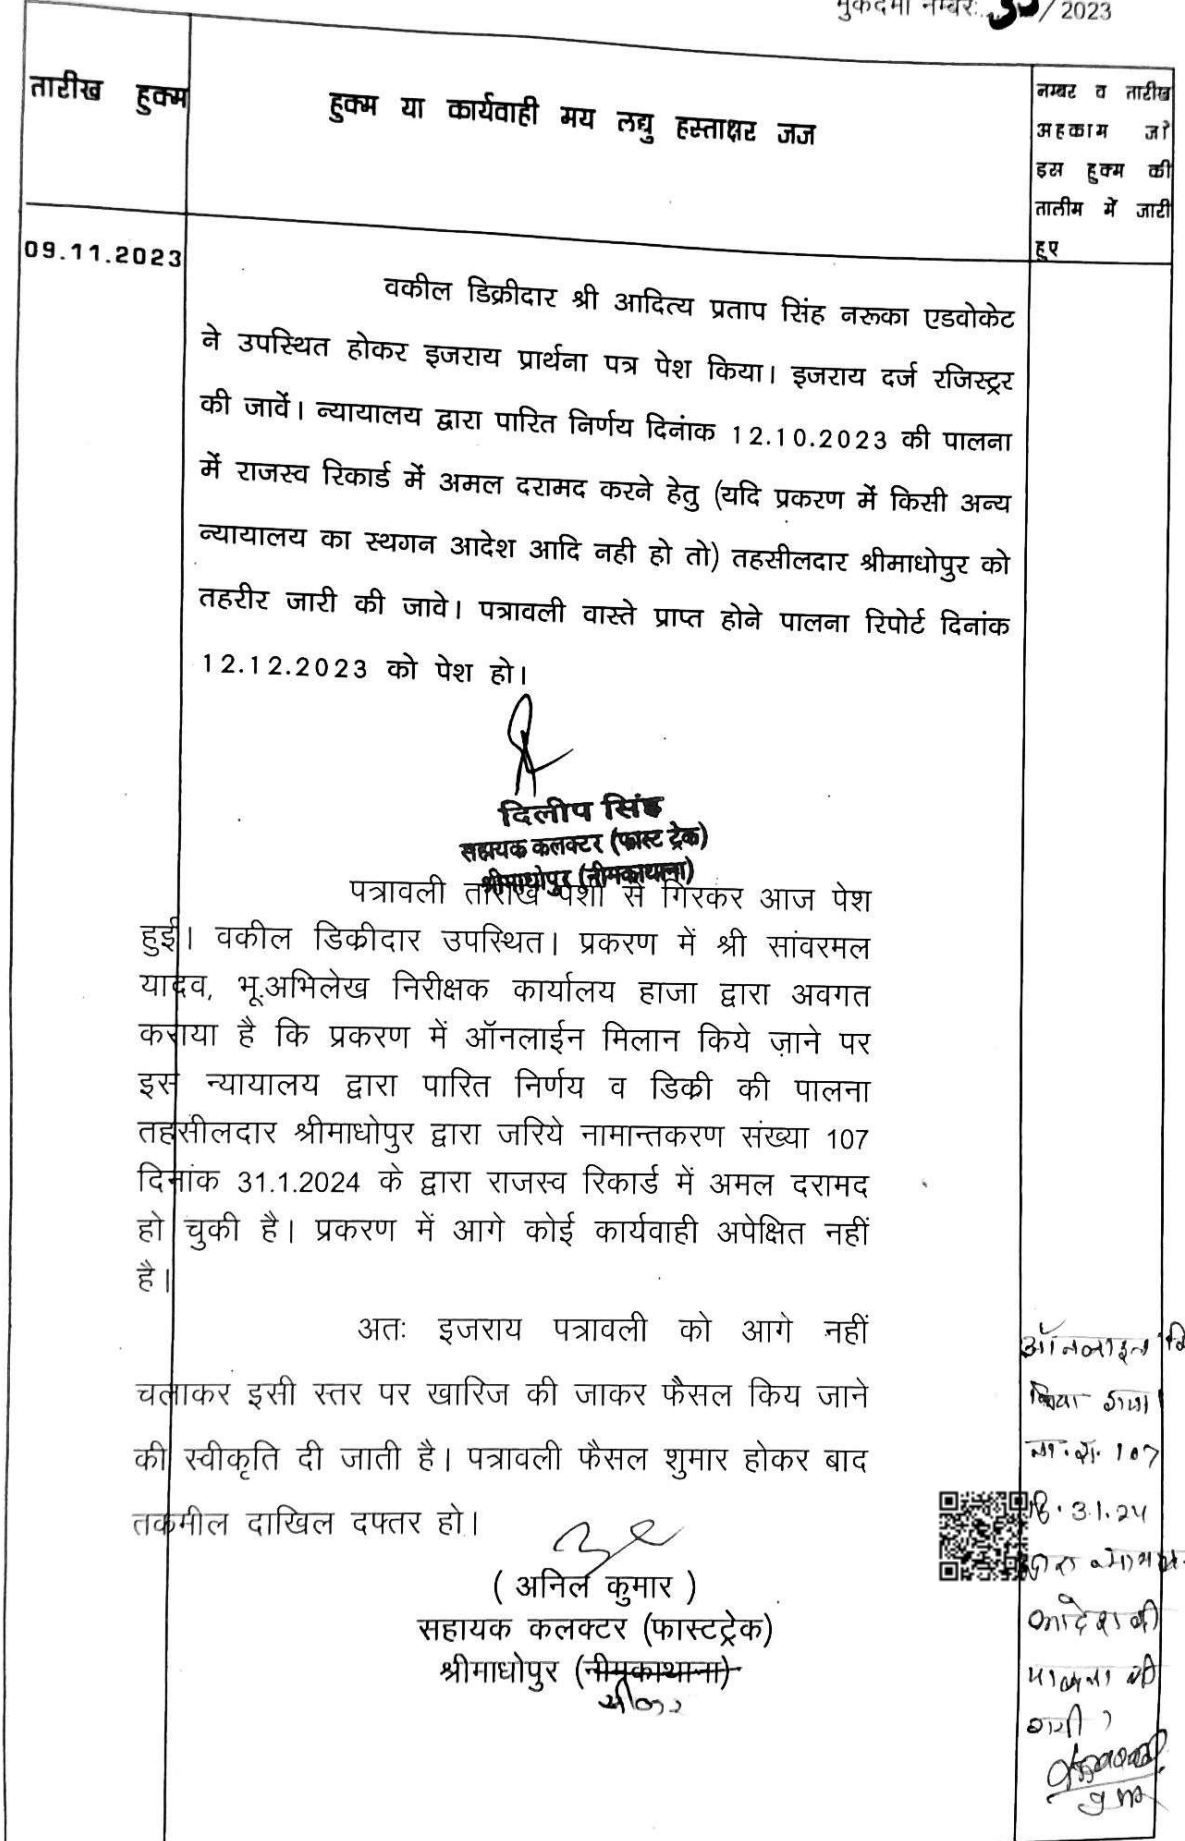 मुकदमा नम्बरः..../2023
तारीख हुक्म
हुक्म या कार्यवाही मय लघु हस्ताक्षर जज
नम्बर व तारीख
अहकाम जो
इस हुक्म की
तालीम में जारी
हुए
09.11.2023
वकील डिक्रीदार श्री आदित्य प्रताप सिंह नरूका एडवोकेट
ने उपस्थित होकर इजराय प्रार्थना पत्र पेश किया। इजराय दर्ज रजिस्ट्रर
की जावें। न्यायालय द्वारा पारित निर्णय दिनांक 12.10.2023 की पालना
में राजस्व रिकार्ड में अमल दरामद करने हेतु (यदि प्रकरण में किसी अन्य
न्यायालय का स्थगन आदेश आदि नही हो तो) तहसीलदार श्रीमाधोपुर को
तहरीर जारी की जावे। पत्रावली वास्ते प्राप्त होने पालना रिपोर्ट दिनांक
12.12.2023 को पेश हो।
दिलीप सिंह
सहायक कलक्टर (फास्ट ट्रेक)
श्रीमाधोपुर (नीमकाथाना)
पत्रावली तारीख पेशी से गिरकर आज पेश
हुई। वकील डिक्रीदार उपस्थित। प्रकरण में श्री सांवरमल
यादव, भू.अभिलेख निरीक्षक कार्यालय हाजा द्वारा अवगत
कराया है कि प्रकरण में ऑनलाईन मिलान किये ज़ाने पर
इस न्यायालय द्वारा पारित निर्णय व डिक्री की पालना
तहसीलदार श्रीमाधोपुर द्वारा जरिये नामान्तकरण संख्या 107
दिनांक 31.1.2024 के द्वारा राजस्व रिकार्ड में अमल दरामद
हो चुकी है। प्रकरण में आगे कोई कार्यवाही अपेक्षित नहीं
है।
अतः इजराय पत्रावली को आगे नहीं
चलाकर इसी स्तर पर खारिज की जाकर फैसल किय जाने
की स्वीकृति दी जाती है। पत्रावली फैसल शुमार होकर बाद
तकमील दाखिल दफ्तर हो।
( अनिल कुमार )
सहायक कलक्टर (फास्टट्रेक)
श्रीमाधोपुर (नीमकाथाना)
सीकर
ऑनलाइन
किया गया
ना.सं. 107
दि. 31.24
द्वारा
आदेश की
पालना की
गयी।